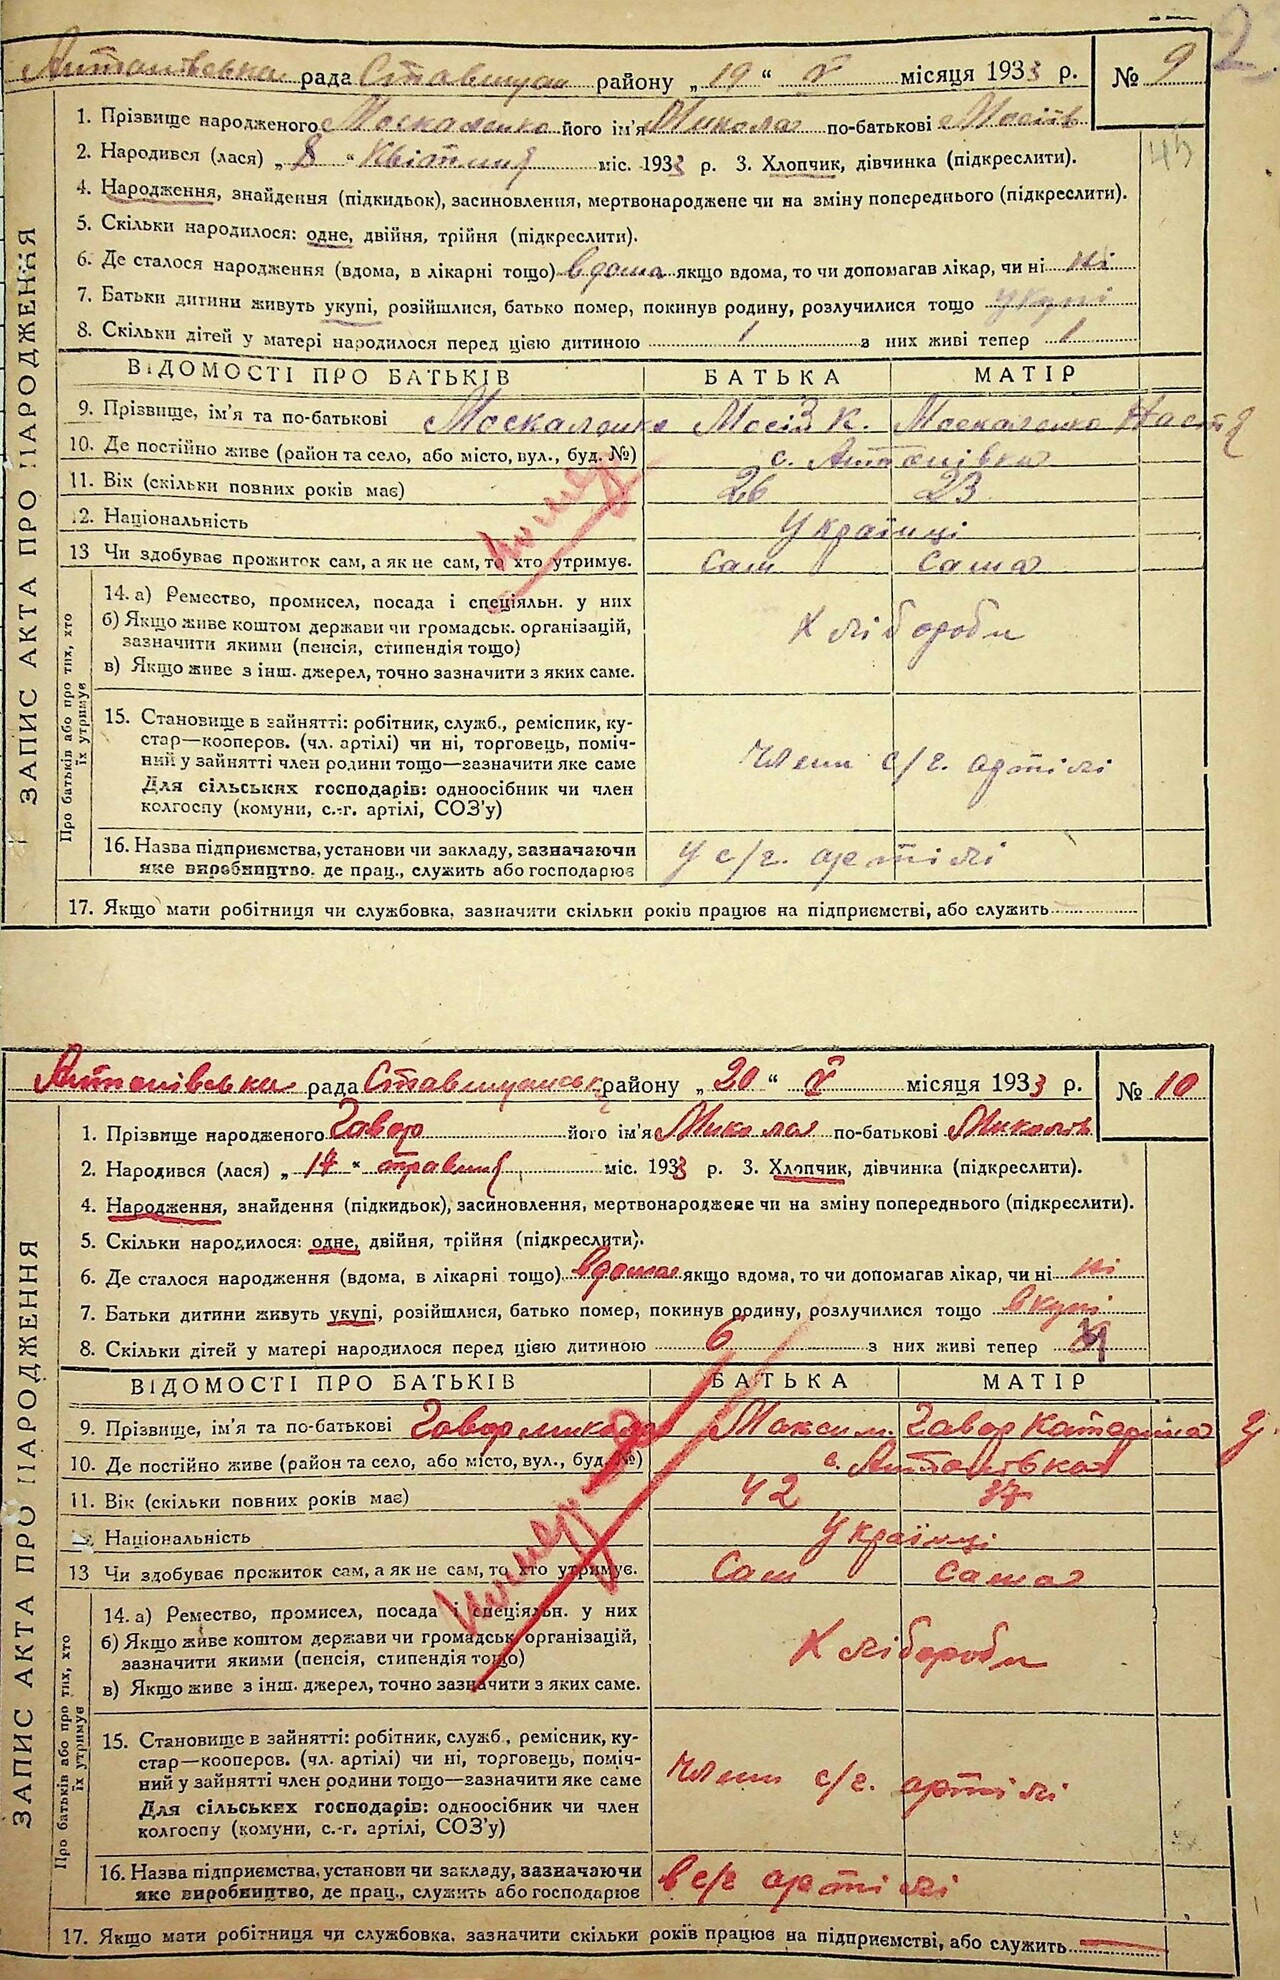 2
Антонівська рада Ставищан району „ 19 “ V місяця 1933 р. № 9
45
ЗАПИС АКТА ПРО НАРОДЖЕННЯ
1. Прізвище народженого Москаленко його ім'я Микола по-батькові Мосіїв
2. Народився (лася) „ 8 “ Квітння міс. 1933 р. 3. Хлопчик, дівчинка (підкреслити).
4. Народження, знайдення (підкидьок), засиновлення, мертвонароджене чи на зміну попереднього (підкреслити).
5. Скільки народилося: одне, двійня, трійня (підкреслити).
6. Де сталося народження (вдома, в лікарні тощо) вдома якщо вдома, то чи допомагав лікар, чи ні ні
7. Батьки дитини живуть укупі, розійшлися, батько помер, покинув родину, розлучилися тощо укупі
8. Скільки дітей у матері народилося перед цією дитиною 1 з них живі тепер 1
ВІДОМОСТІ ПРО БАТЬКІВ БАТЬКА МАТІР
9. Прізвище, ім'я та по-батькові Москаленко Мосій К. Москаленко Настя
10. Де постійно живе (район та село, або місто, вул., буд. №) с. Антонівка
11. Вік (скільки повних років має) 26 23
12. Національність Українці
помер
13 Чи здобуває прожиток сам, а як не сам, то хто утримує. Сам Сама
Про батьків або про тих, хто їх утримує
14. а) Ремество, промисел, посада і спеціяльн. у них
б) Якщо живе коштом держави чи громадськ. організацій, Хлібороби
зазначити якими (пенсія, стипендія тощо)
в) Якщо живе з інш. джерел, точно зазначити з яких саме.
15. Становище в зайнятті: робітник, служб., ремісник, ку-
стар—кооперов. (чл. артілі) чи ні, торговець, поміч-
ний у зайнятті член родини тощо—зазначити яке саме Члени с/г. артілі
Для сільських господарів: одноосібник чи член
колгоспу (комуни, с.-г. артілі, СОЗ'у)
16. Назва підприємства, установи чи закладу, зазначаючи У с/г. артілі
яке виробництво, де прац., служить або господарює
17. Якщо мати робітниця чи службовка, зазначити скільки років працює на підприємстві, або служить
Антонівська рада Ставищанськ району „ 20 “ V місяця 1933 р. № 10
ЗАПИС АКТА ПРО НАРОДЖЕННЯ
1. Прізвище народженого Гавор його ім'я Микола по-батькові Миколів
2. Народився (лася) „ 17 “ травня міс. 1933 р. 3. Хлопчик, дівчинка (підкреслити).
4. Народження, знайдення (підкидьок), засиновлення, мертвонароджене чи на зміну попереднього (підкреслити).
5. Скільки народилося: одне, двійня, трійня (підкреслити).
6. Де сталося народження (вдома, в лікарні тощо) вдома якщо вдома, то чи допомагав лікар, чи ні ні
7. Батьки дитини живуть укупі, розійшлися, батько помер, покинув родину, розлучилися тощо вкупі
8. Скільки дітей у матері народилося перед цією дитиною 6 з них живі тепер
ВІДОМОСТІ ПРО БАТЬКІВ БАТЬКА МАТІР
9. Прізвище, ім'я та по-батькові Гавор Микола Максим. Гавор Катерина
10. Де постійно живе (район та село, або місто, вул., буд. №) с. Антонівка
11. Вік (скільки повних років має) 42 37
12. Національність Українці
помер
13 Чи здобуває прожиток сам, а як не сам, то хто утримує. Сам Сама
Про батьків або про тих, хто їх утримує
14. а) Ремество, промисел, посада і спеціяльн. у них
б) Якщо живе коштом держави чи громадськ. організацій, Хлібороби
зазначити якими (пенсія, стипендія тощо)
в) Якщо живе з інш. джерел, точно зазначити з яких саме.
15. Становище в зайнятті: робітник, служб., ремісник, ку-
стар—кооперов. (чл. артілі) чи ні, торговець, поміч-
ний у зайнятті член родини тощо—зазначити яке саме Члени с/г. артілі
Для сільських господарів: одноосібник чи член
колгоспу (комуни, с.-г. артілі, СОЗ'у)
16. Назва підприємства, установи чи закладу, зазначаючи В с/г артілі
яке виробництво, де прац., служить або господарює
17. Якщо мати робітниця чи службовка, зазначити скільки років працює на підприємстві, або служить